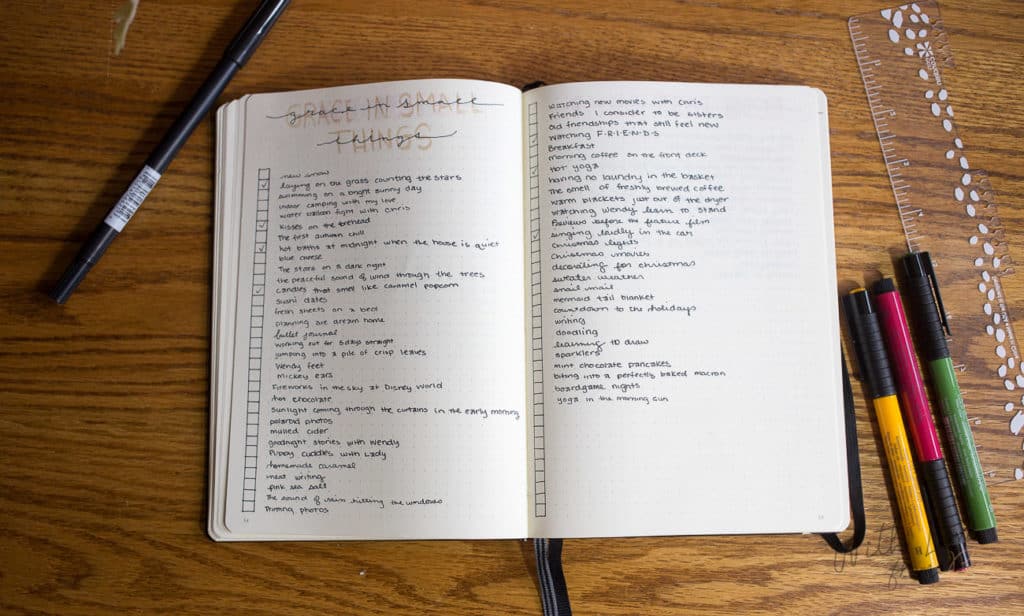 GRACE IN SMALL
THINGS
grace in small
things
new snow
laying on the grass counting the stars
swimming on a bright sunny day
indoor camping with my love
water balloon fight with chris
kisses on the forehead
The first autumn chill
hot baths at midnight when the house is quiet
blue cheese
The stars on a dark night
the peaceful sound of wind through the trees
candles that smell like caramel popcorn
sushi dates
fresh sheets on a bed
planning are dream home
bullet journal
working out for 5 days straight
jumping into a pile of crisp leaves
Wendy feet
Mickey ears
Fireworks in the sky at Disney World
hot chocolate
sunlight coming through the curtains in the early morning
polaroid photos
mulled cider
goodnight stories with Wendy
Puppy cuddles with Lady
homemade caramel
neat writing
pink sea salt
The sound of rain hitting the windows
Printing photos
watching new movies with chris
Friends I consider to be sisters
old friendships that still feel new
watching F·R·I·E·N·D·S
Breakfast
morning coffee on the front deck
hot yoga
having no laundry in the basket
The smell of freshly brewed coffee
warm blankets just out of the dryer
watching wendy learn to stand
Previews before the feature film
singing loudly in the car
Christmas lights
Christmas movies
decorating for christmas
sweater weather
snail mail
mermaid tail blanket
countdown to the holidays
writing
doodling
learning to draw
sparklers
mint chocolate pancakes
biting into a perfectly baked macron
boardgame nights
yoga in the morning sun